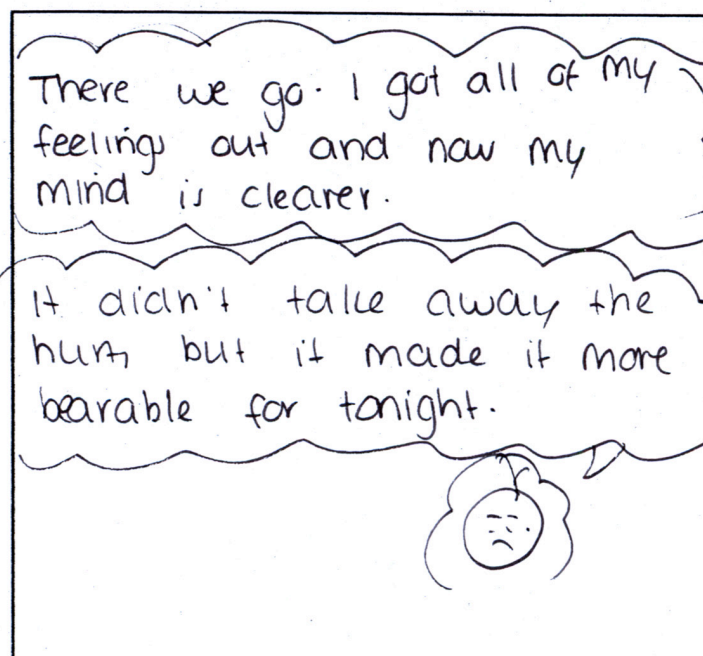 There we go. I got all of my
feelings out and now my
mind is clearer.
It didn't take away the
hurt, but it made it more
bearable for tonight.